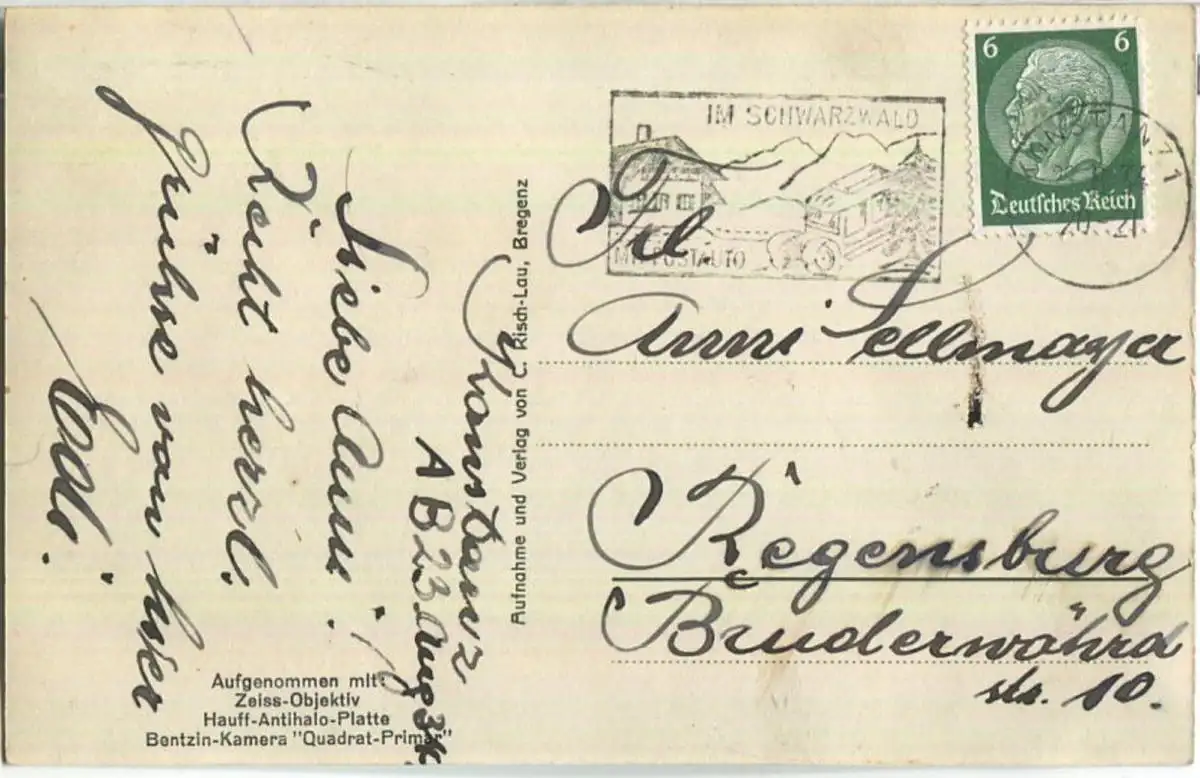 Konstanz
A B 23 Aug 34.
Liebe Anni!
Recht herzl.
Grühse von hier
Edi.
Aufgenommen mit:
Zeiss-Objektiv
Hauff-Antihalo-Platte
Bentzin-Kamera "Quadrat-Primar"
Aufnahme und Verlag von C. Risch-Lau, Bregenz
IM SCHWARZWALD
MIT POSTAUTO
6 6
Deutsches Reich
KONSTANZ 1
20-21
Frl
Anni Sellmayer
Regensburg
Bruderwöhrd
str. 10.